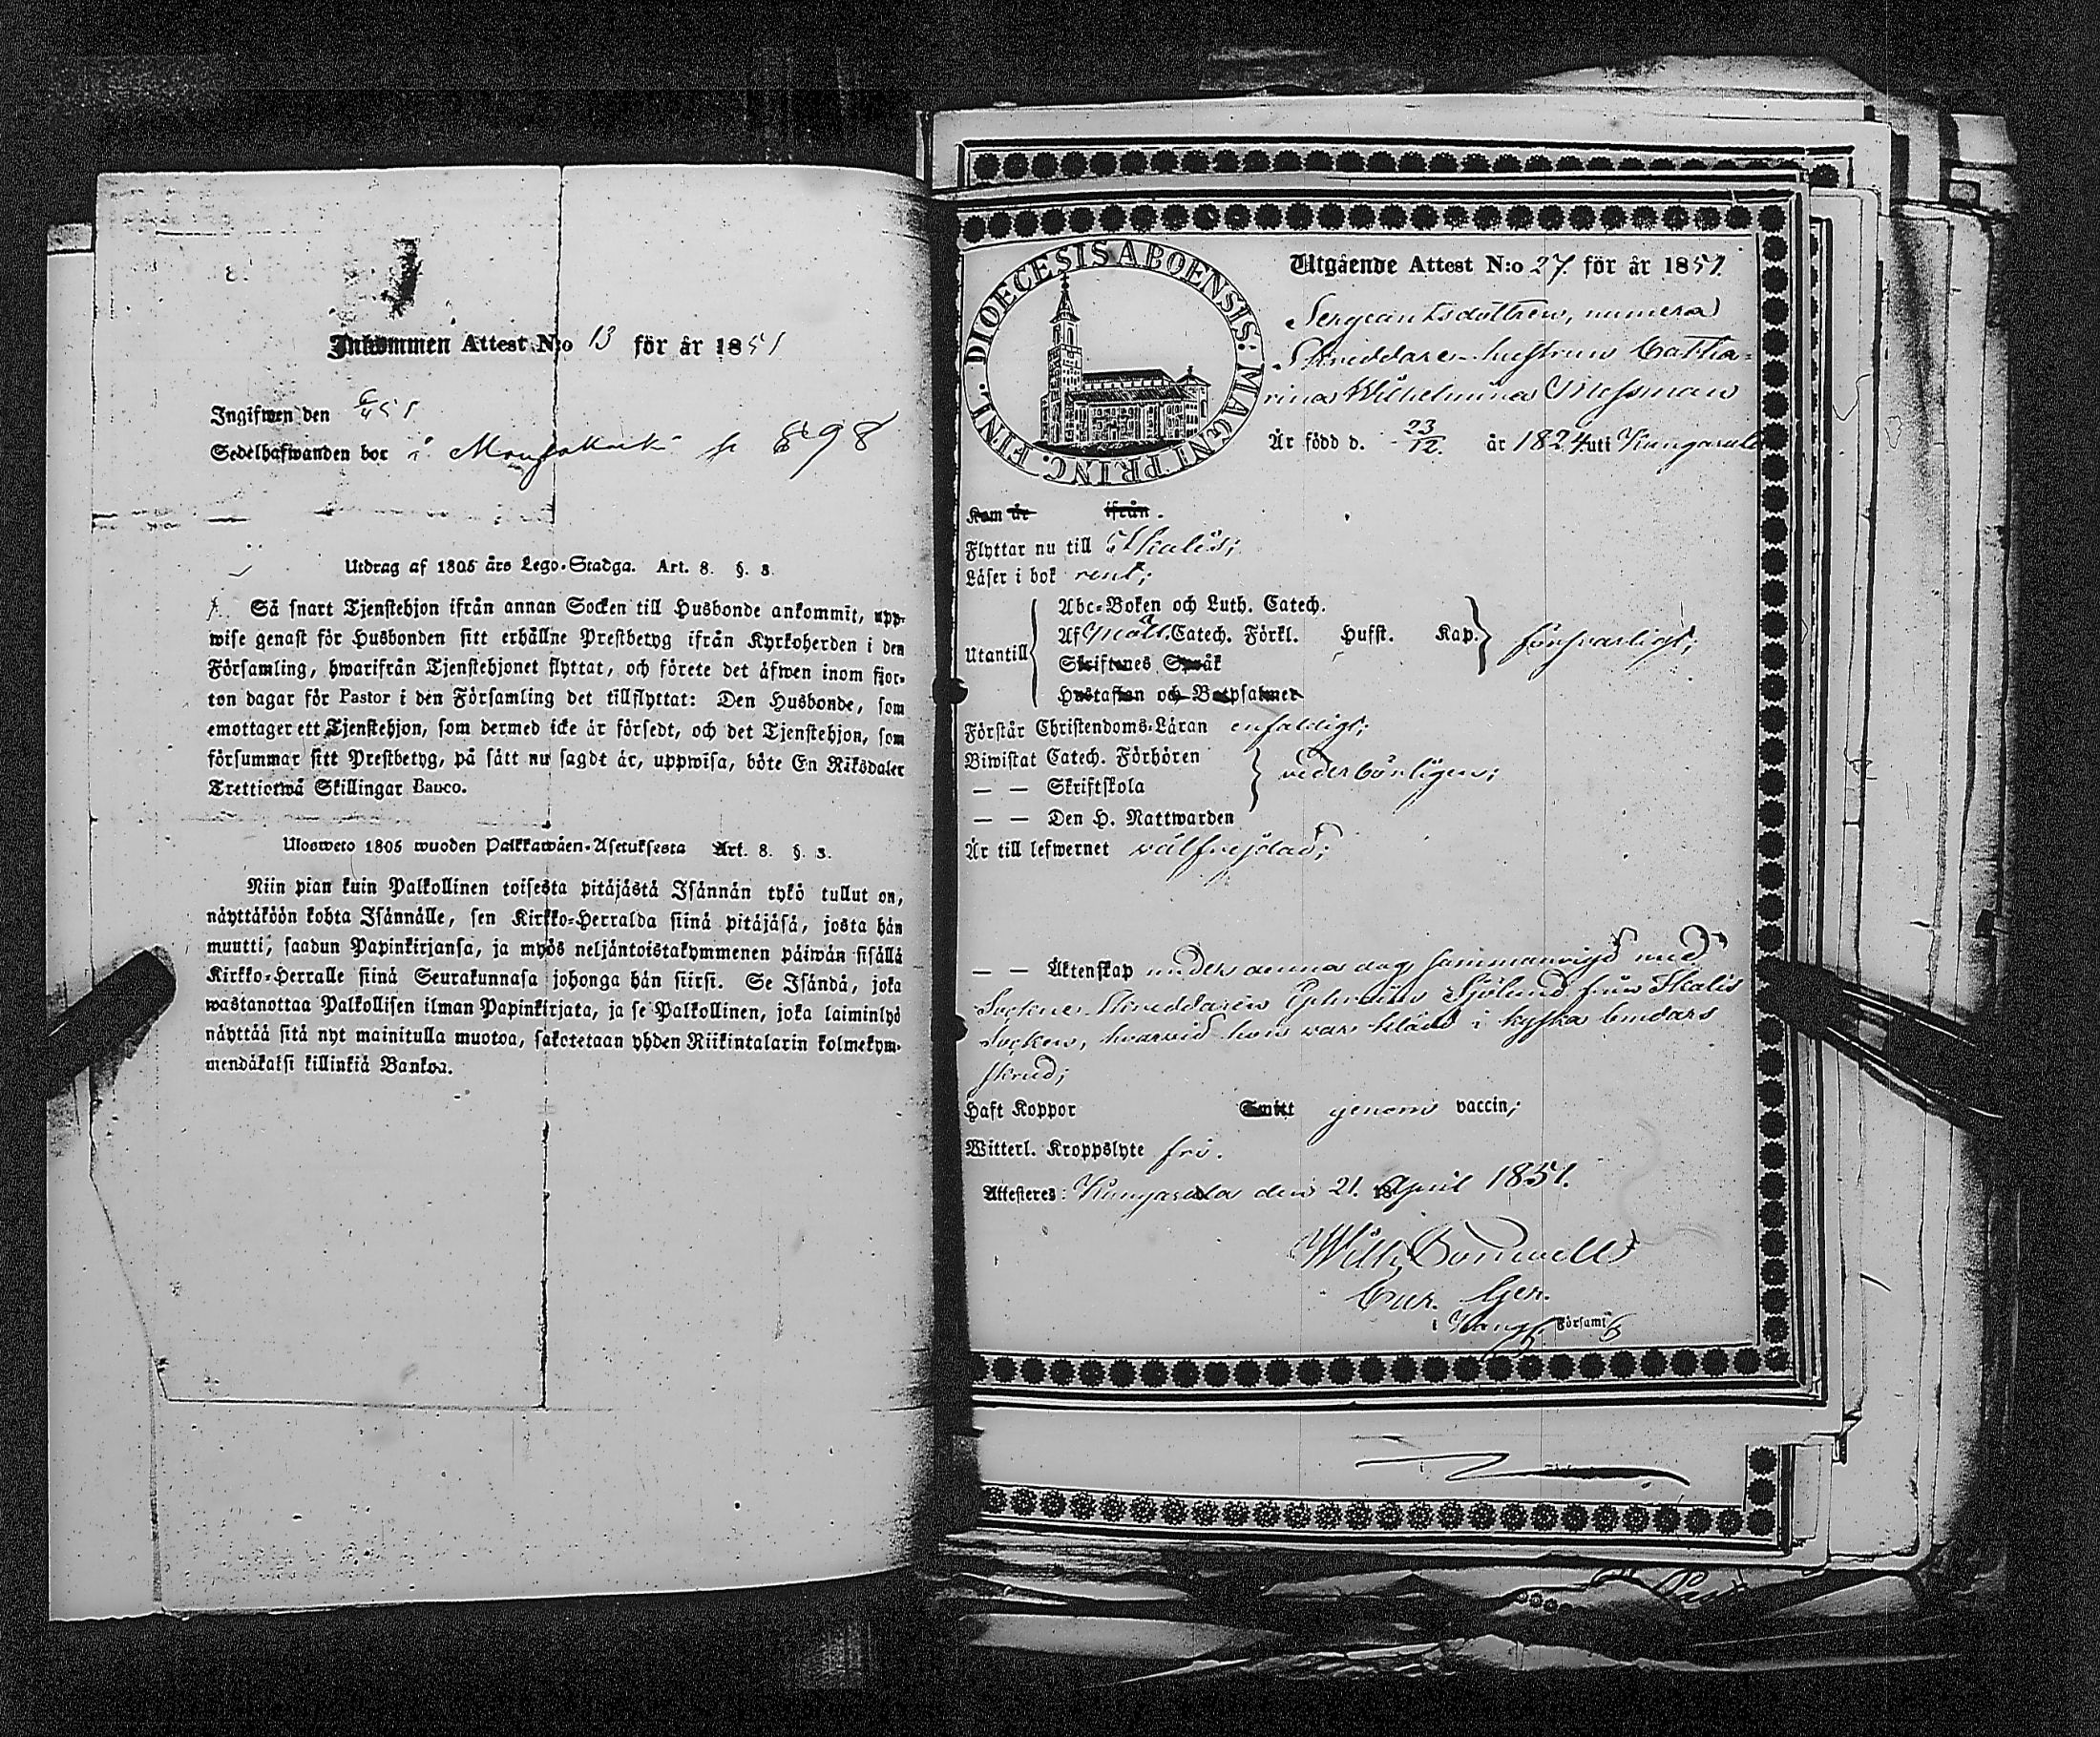 Inkommen Attest N:o 13 för år 1851
Ingifwen den 6/4 51
Sedelhafwanden bor i
Utdrag af 1805 års Lego-Stadga. Art. 8. §. 3.
Så snart Tjenstehjon ifrån annan Socken till Husbonde ankommit, upp-
wise genast för Husbonden sitt erhållne Prestbetyg ifrån Kyrkoherden i den
Församling, hwarifrån Tjenstehjonet flyttat, och förete det äfwen inom fjor-
ton dagar för Pastor i den Församling det tillflyttat: Den Husbonde, som
emottager ett Tjenstehjon, som dermed icke är försedt, och det Tjenstehjon, som
försummar sitt Prestbetyg, på sätt nu sagdt är, uppwisa, böte En Riksdaler
Trettiotwå Skillingar Banco.
Ulosweto 1805 wuoden Palkkawäen-Asetuksesta Art. 8. §. 3.
Niin pian kuin Palkollinen toisesta pitäjästä Isännän tykö tullut on,
näyttäköön kohta Isännälle, sen Kirkko-Herralda siinä pitäjäsä, josta hän
muutti, saadun Papinkirjansa, ja myös neljäntoistakymmenen päiwän sisällä
Kirkko-Herralle siinä Seurakunnasa johonga hän siirsi. Se Isändä, joka
wastanottaa Palkollisen ilman Papinkirjata, ja se Palkollinen, joka laiminlyö
näyttää sitä nyt mainitulla muotoa, sakotetaan yhden Riikintalarin kolmekym-
mendäkaksi killinkiä Bankoa.
DIOECESIS ABOENSIS: MAGNI PRINC. FINL.
Utgående Attest N:o 27 för år 1851
Sergeantsdottren, numera
Skräddare-hustrun Catha-
rina Wilhelmina Messman
Är född d. 23/12 år 1824 uti Kungarula
Kom år ifrån
Flyttar nu till Skalis;
Läser i bok rent;
Utantill
Abc-Boken och Luth. Catech.
Af Möll. Catech. Förkl. Hufst. Kap. försvarligt;
Skriftenes Språk
Hustaflan och Botpsalmer
Förstår Christendoms-Läran enfaldigt;
Biwistat Catech. Förhören
— — Skriftskola vederbörligen;
— — Den H. Nattwarden
Är till lefwernet välfrejdad;
— — Äktenskap under denna dag sammanvigd med
Sockne-Skräddaren Ephraim Sjölund från Skalis
Socken, hvarvid hon var klädd i kyska brudars
skrud;
Haft Koppor Smitt genom vaccin;
Witterl. Kroppslyte fri.
Attesteras: Kungarula den 21. 18 April 1851.
Wilh.
Cur. Ger.
i Kung. Församl